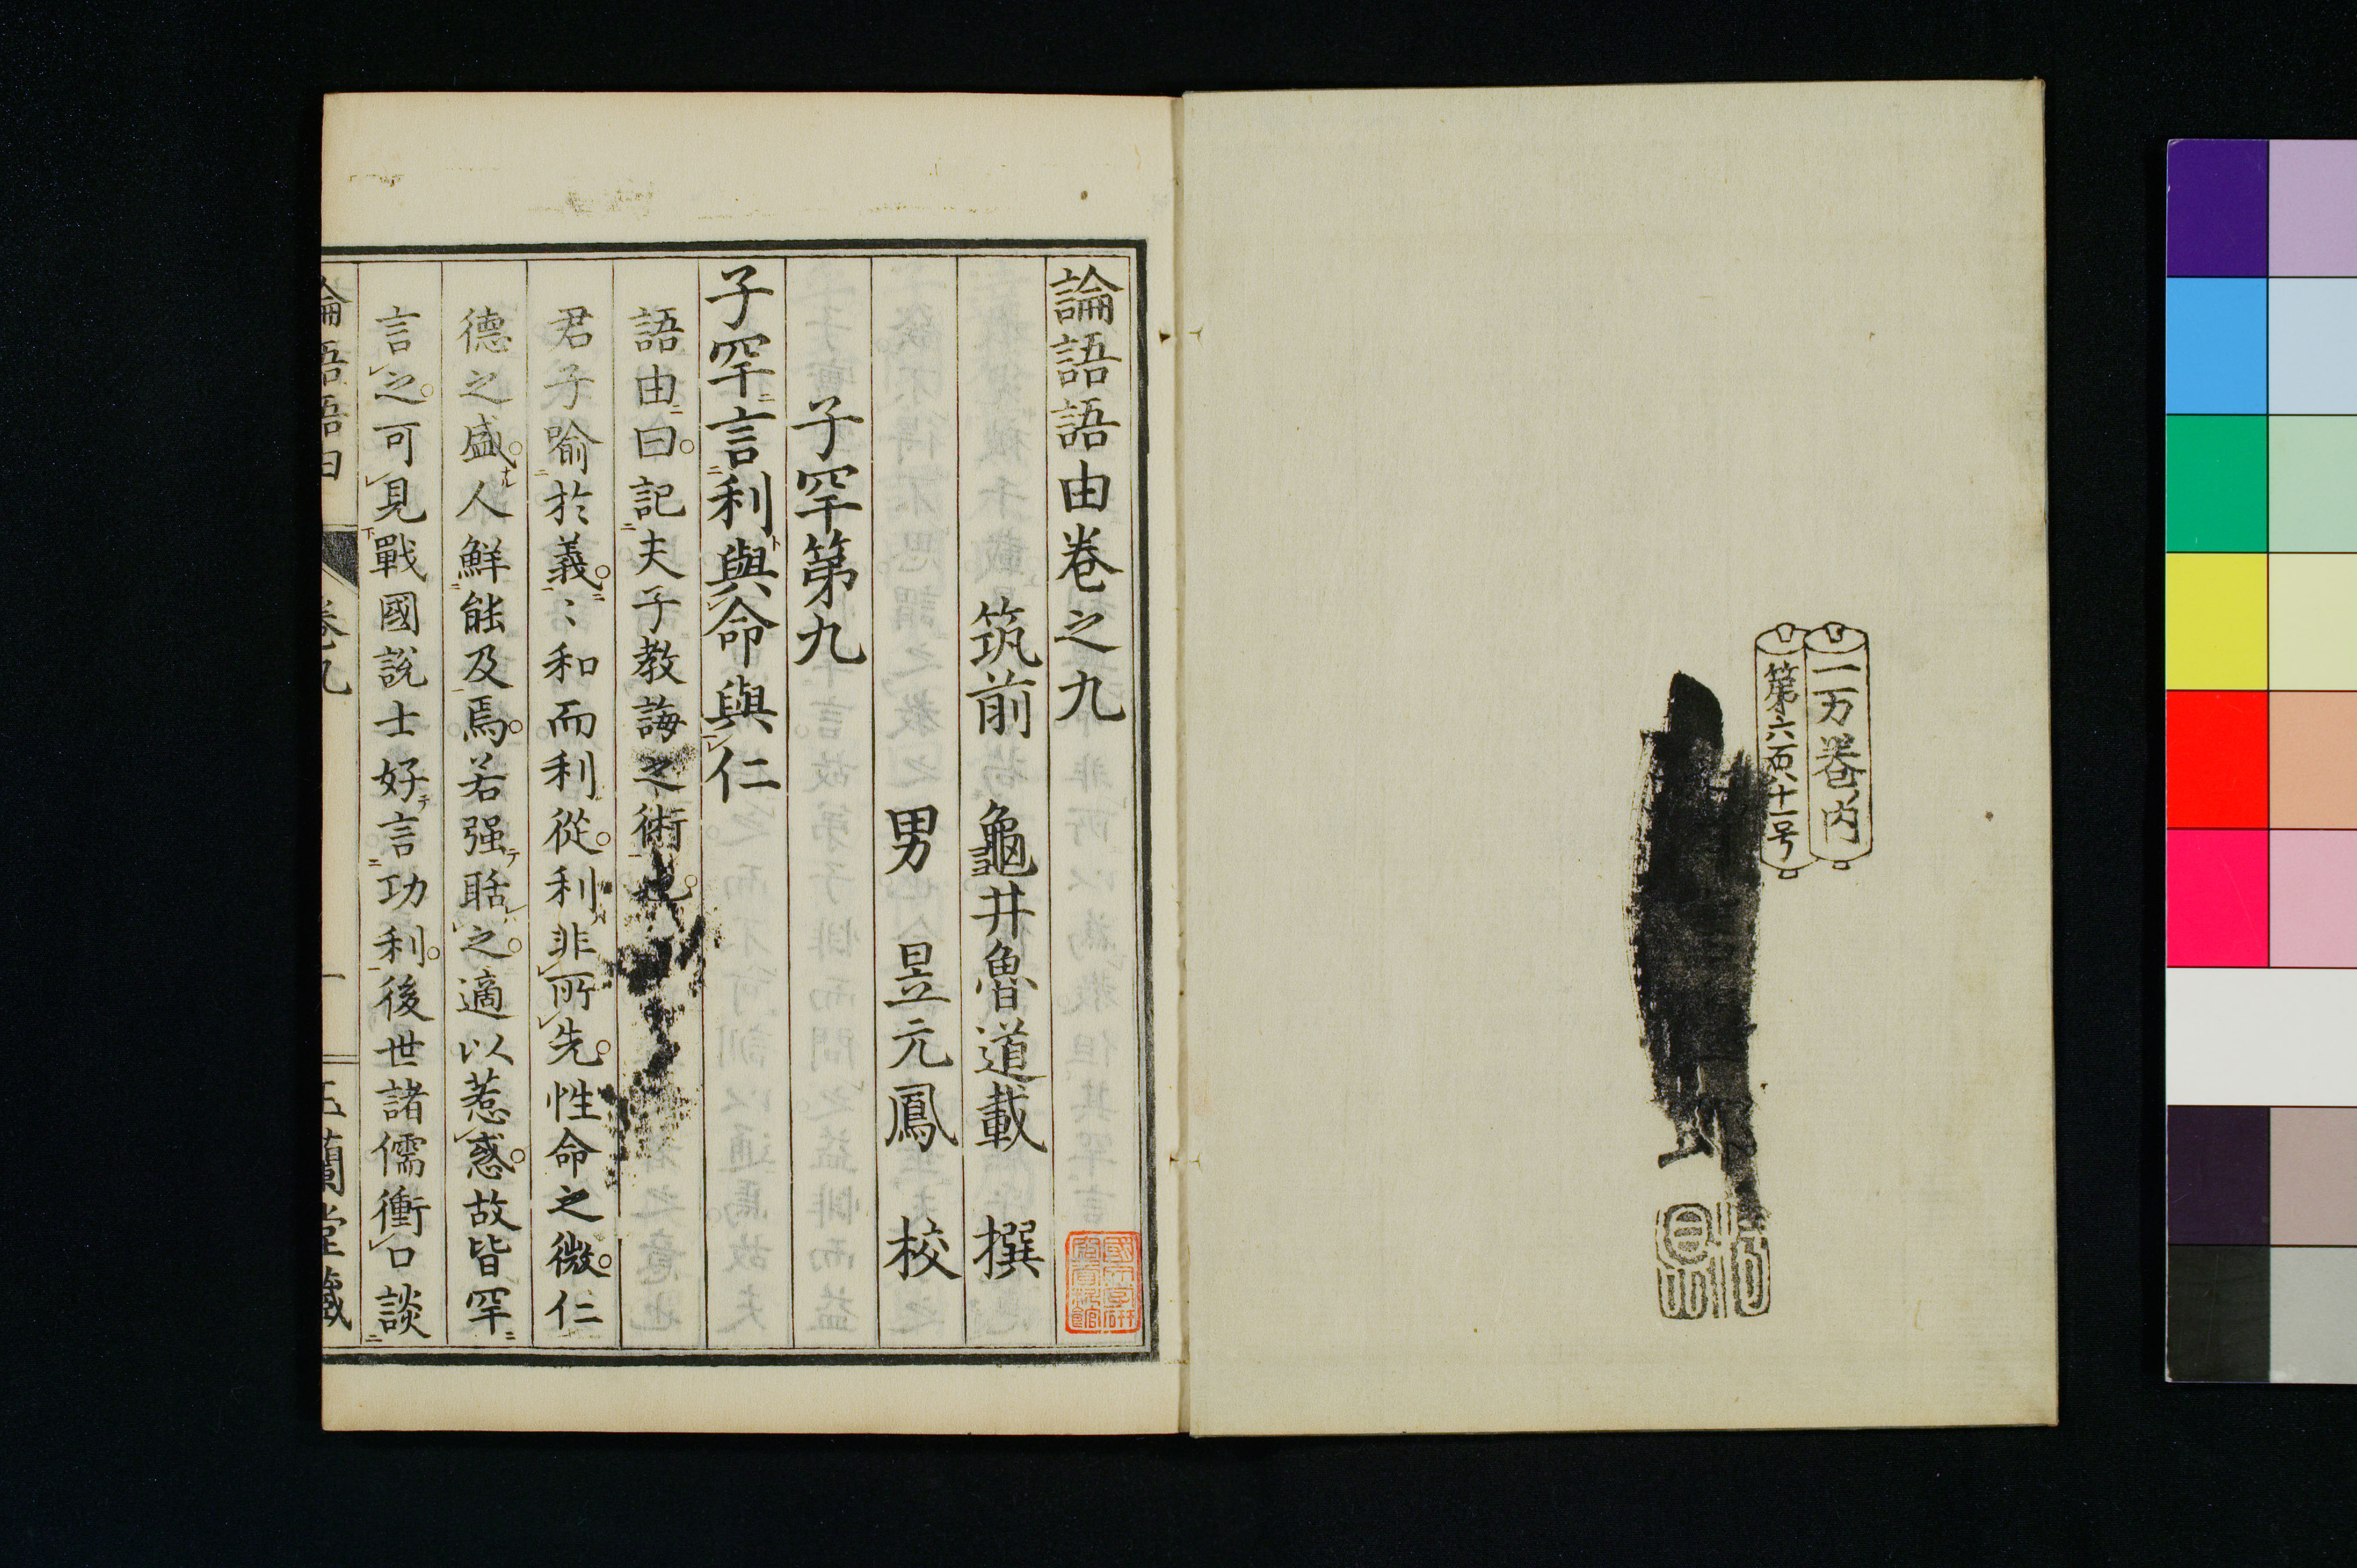 一万巻内
第六百八十一号
論語語由卷之九
筑前 龜井魯道載 撰
男 昱元鳳 校
子罕第九
子罕言利與命與仁
語由曰記夫子教誨之術也
君子喻於義義和而利從利非所先性命之微仁
德之盛人鮮能及焉若强聒之適以惹惑故皆罕
言之可見戰國說士好言功利後世諸儒衝口談
論語語由 卷九 一 玉蘭堂藏